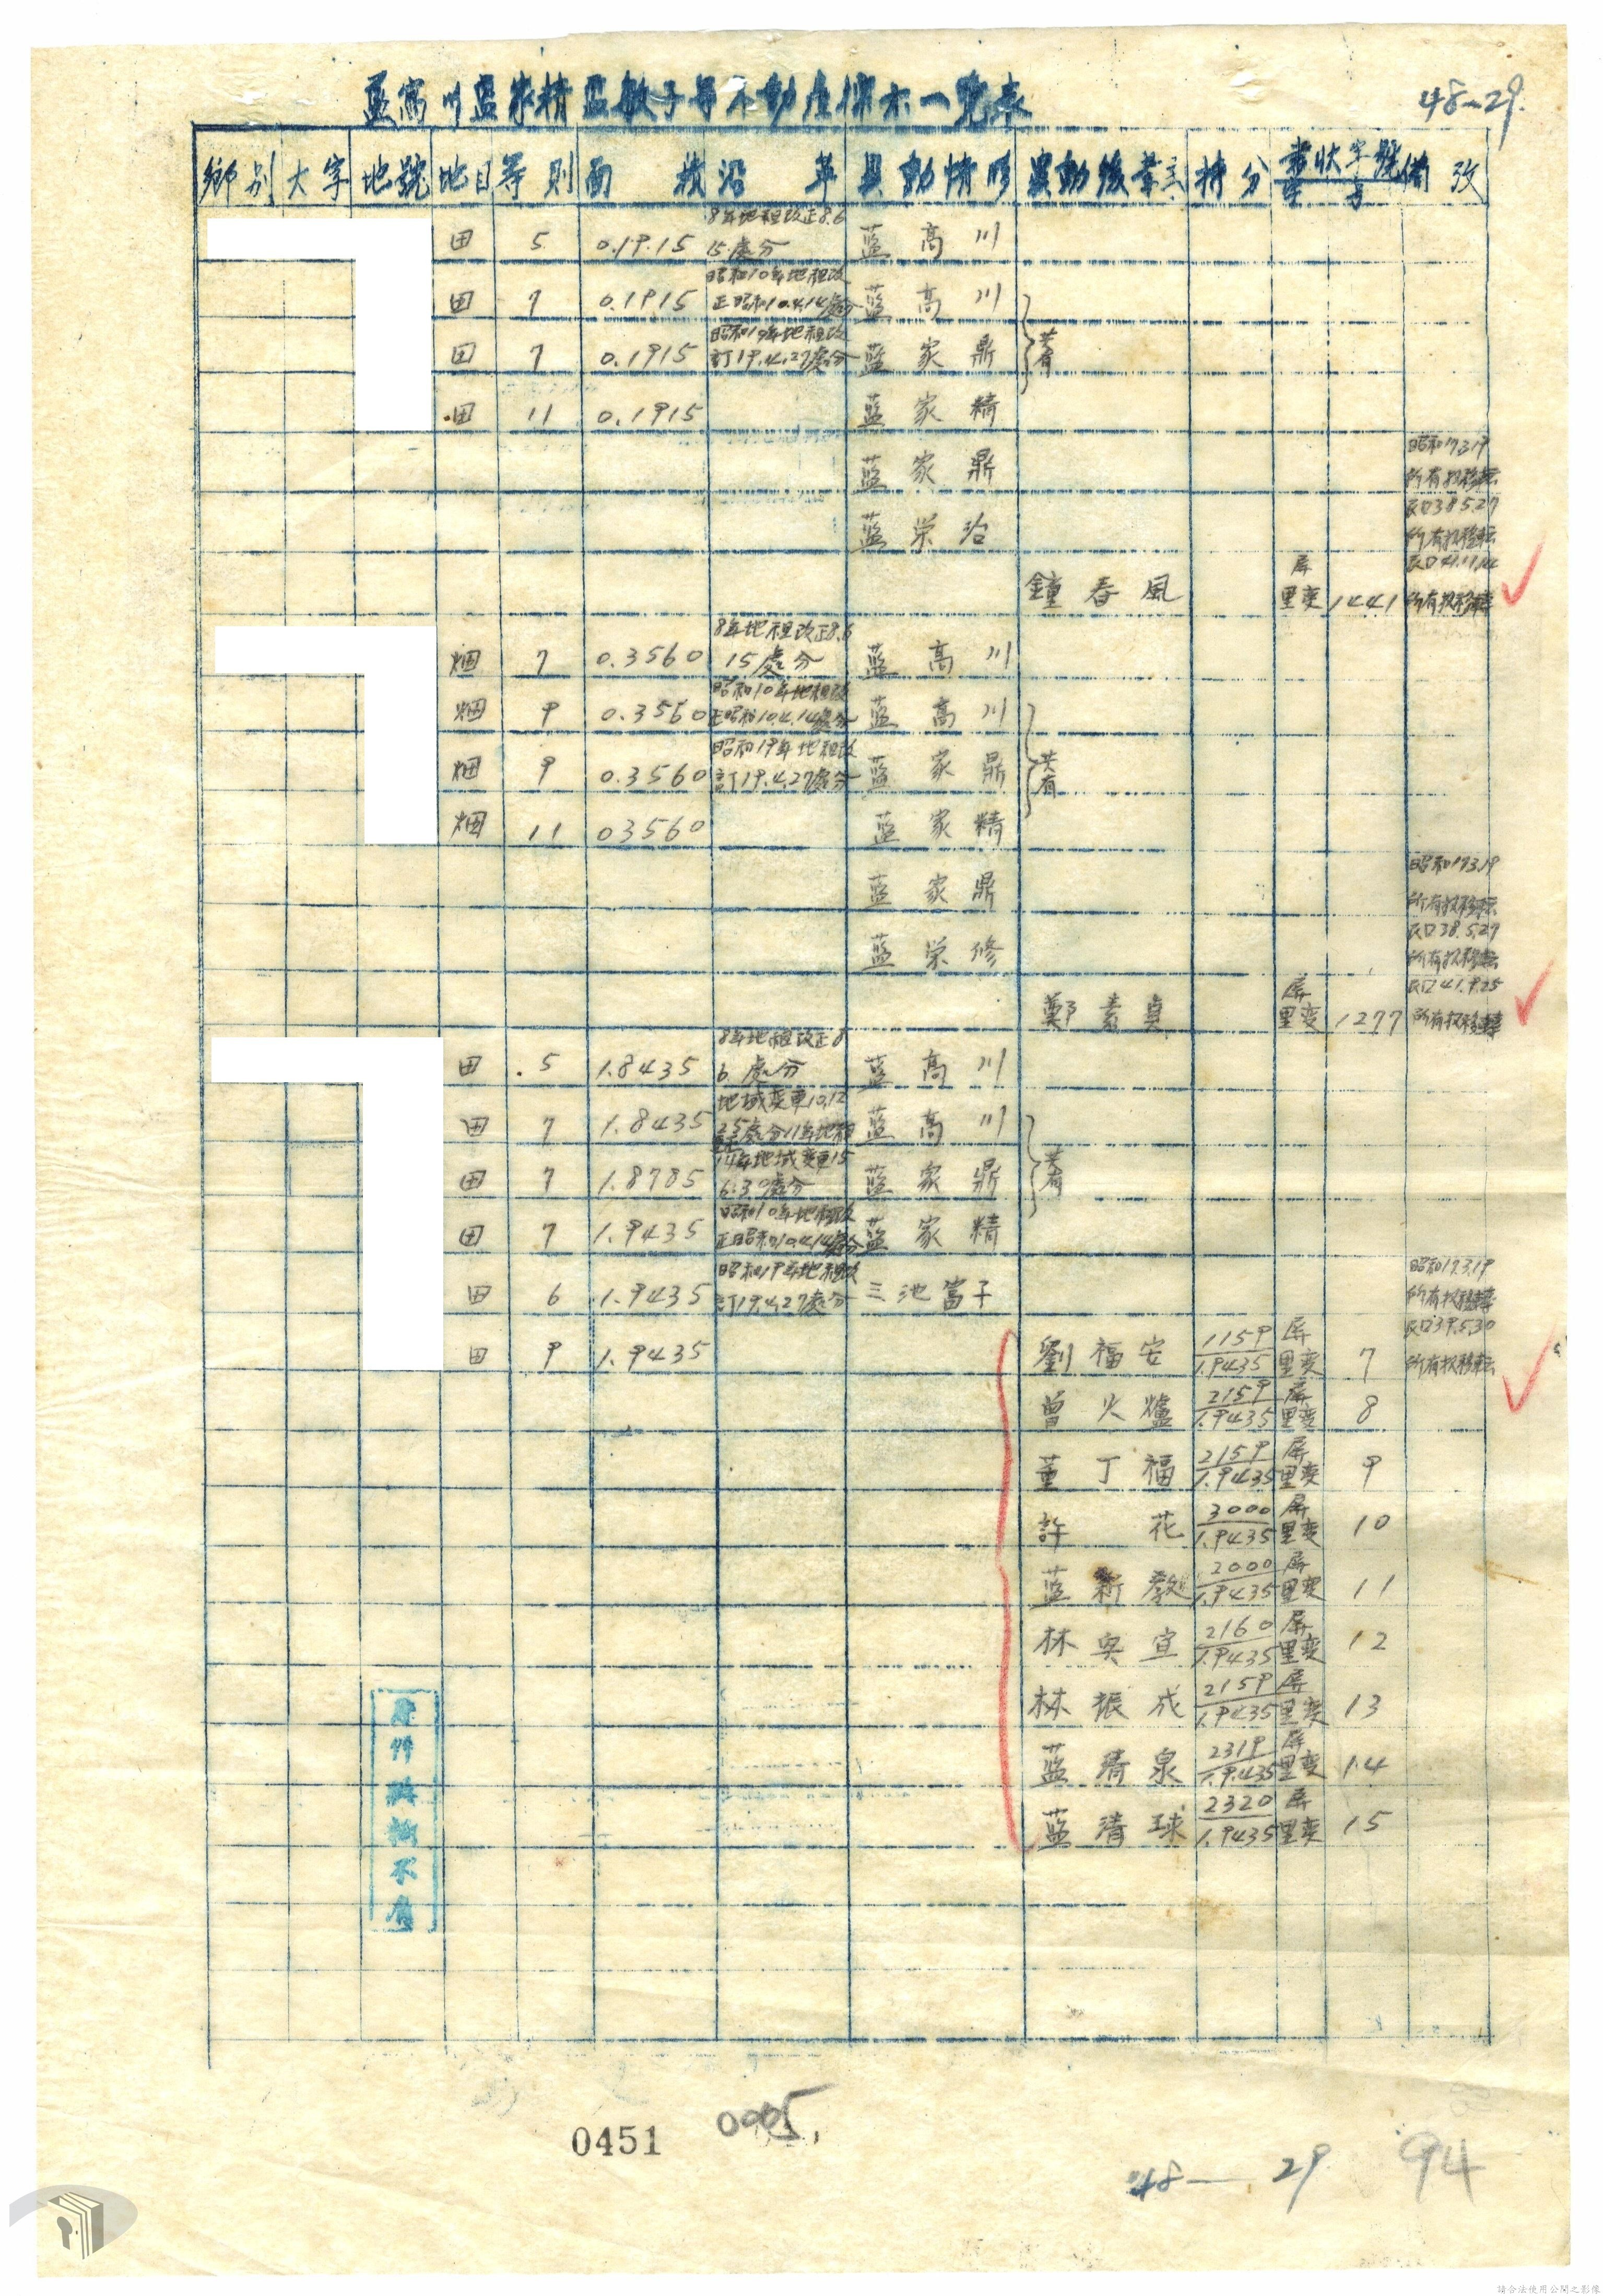 藍高川藍家精藍敏子等不動產標示一覽表
48-29.
鄉別 大字 地號 地目 等則 面積 沿革 異動情形 異動後業主 持分 書狀字號 備攷
8年地租改正8.6
田 5 0.19.15 15.處分 藍高川
昭和10年地租改
田 7 0.1915 正昭和10.4.14處分 藍高川
昭和19年地租改
田 7 0.1915 訂19.4.27處分 藍家鼎 共有
田 11 0.1915 藍家精
昭和17.3.19
藍家鼎 所有权移転
民口38.5.27
藍栄治 所有权移転
屏 民口41.11.14
鐘春風 里变 1441 所有权移轉
8年地租改正8.6
畑 7 0.3560 15處分 藍高川
昭和10年地租改
畑 9 0.3560 正昭和10.4.14處分 藍高川
昭和19年地租改
畑 9 0.3560 訂19.4.27處分 藍家鼎 共有
畑 11 03560 藍家精
昭和17.3.19
藍家鼎 所有权移転
民口38.5.27
藍栄修 所有权移転
屏 民口41.9.25
鄭素貞 里变 1277 所有权移轉
8年地租改正8
田 5 1.8435 6.處分 藍高川
地域变更10.12
田 7 1.8435 25處分11年地租 藍高川
14年地域变更15
田 7 1.8785 6.30處分 藍家鼎 共有
昭和10年地租改
田 7 1.9435 正昭和10.4.14處分 藍家精
昭和19年地租改 昭和17.3.19
田 6 1.9435 訂19.4.27處分 三池富子 所有权移轉
1159 屏 民口39.5.30
田 9 1.9435 劉福安 1.9435 里变 7 所有权移転
2159 屏
曾火爐 1.9435 里变 8
2159 屏
董丁福 1.9435 里变 9
3000 屏
許花 1.9435 里变 10
2000 屏
藍新教 1.9435 里变 11
2160 屏
林奥宣 1.9435 里变 12
2159 屏
林振成 1.9435 里变 13
2319 屏
藍清泉 1.9.435 里变 14
2320 屏
藍清球 1.9435 里变 15
0451
0005
48— 29
94
請合法使用公開之影像